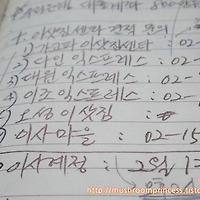 1. 이삿짐센타 견적 문의
1) 가고파 이삿짐센타 : 02
2) 다인 익스프레스 : 02-
3) 대원 익스프레스 : 02-
4) 이조익스프레스 : 02-
5) 오성 이삿짐 :
6) 이사마을 : 02-15
이사예정 : 2월 1
http://mushroomprincess.tistory